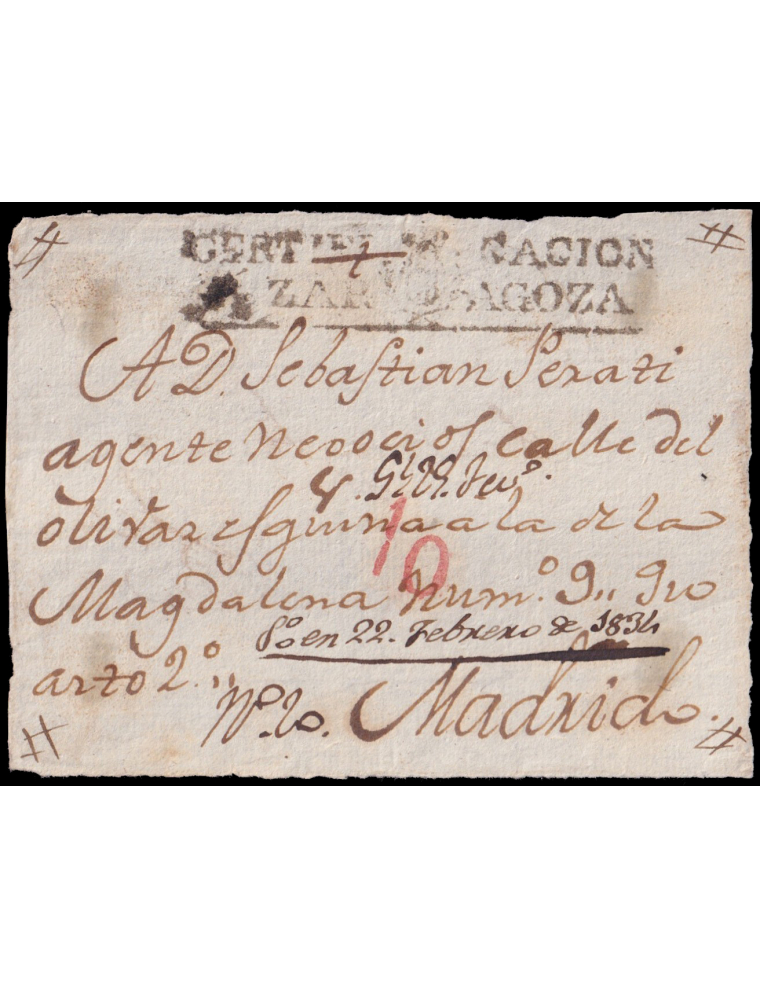 CERTIFICACION
ZARAGOZA
A D. Sebastian Perati
agente Negocios calle del
olivar esquina a la de la
10
Magdalena Num.º 9,, qu
en 22. Febrero de 1834
arto 2.º,,
Nº. 20. Madrid.